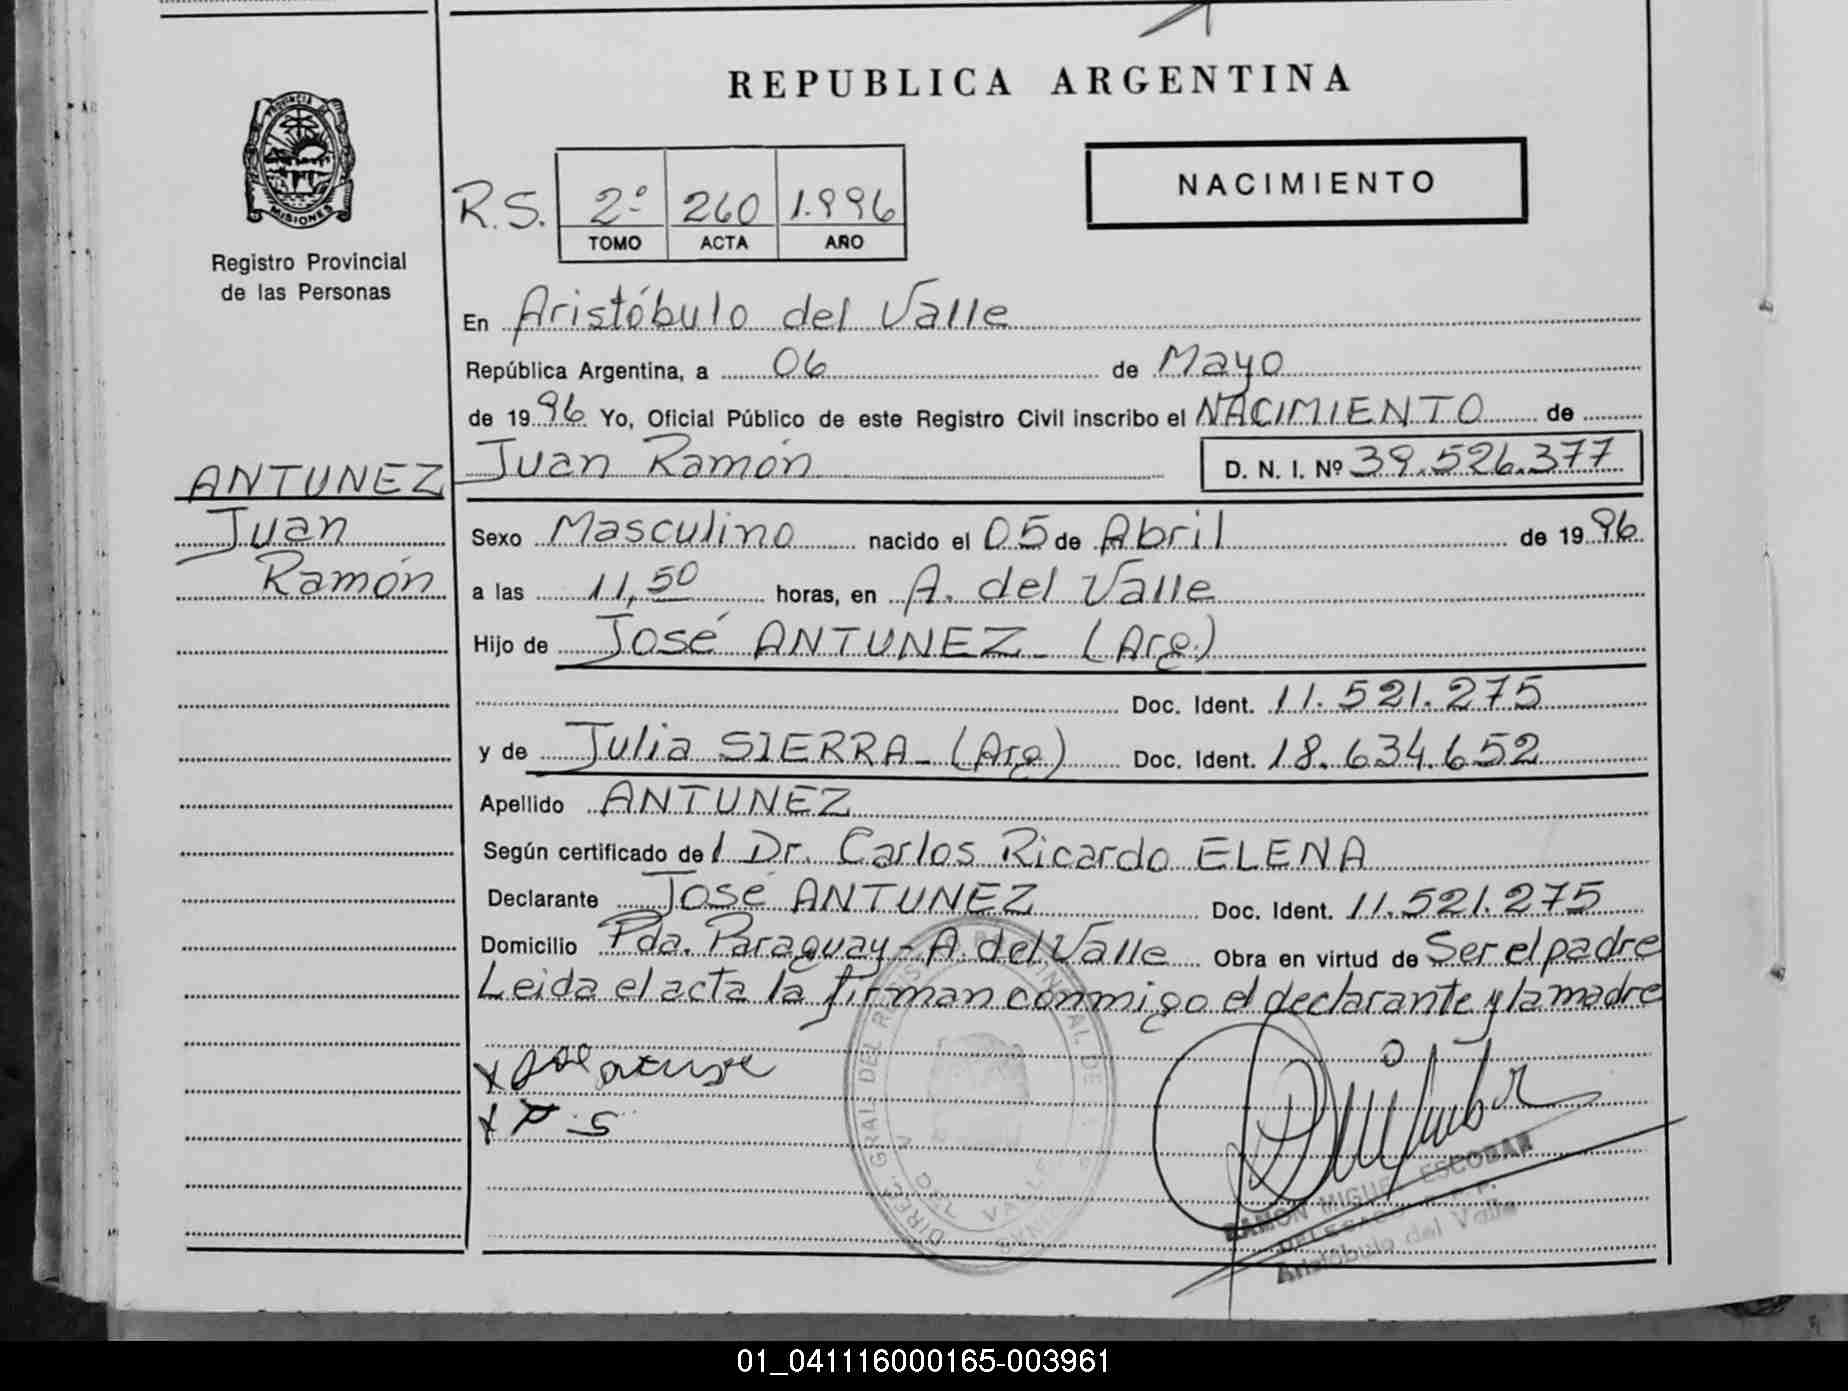 REPUBLICA ARGENTINA
PROVINCIA DE
MISIONES
Registro Provincial
de las Personas
NACIMIENTO
R.S. 2º 260 1.996
TOMO ACTA AÑO
En Aristóbulo del Valle
República Argentina, a 06 de Mayo
de 1996 Yo, Oficial Público de este Registro Civil inscribo el NACIMIENTO de
Juan Ramón D. N. I. Nº 39.526.377
ANTUNEZ
Juan
Ramón
Sexo Masculino nacido el 05 de Abril de 1996
a las 11,50 horas, en A. del Valle
Hijo de José ANTUNEZ - (Arg.)
Doc. Ident. 11.521.275
y de Julia SIERRA - (Arg) Doc. Ident. 18.634.652
Apellido ANTUNEZ
Según certificado del Dr. Carlos Ricardo ELENA
Declarante José ANTUNEZ Doc. Ident. 11.521.275
Domicilio Pda. Paraguay - A. del Valle Obra en virtud de Ser el padre
Leida el acta la firman conmigo el declarante y la madre
RAMON MIGUEL ESCOBAR
Aristóbulo del Valle
01_041116000165-003961